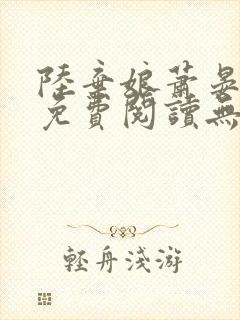 陸棄娘蕭晏
免費閱讀無
輕舟淺游